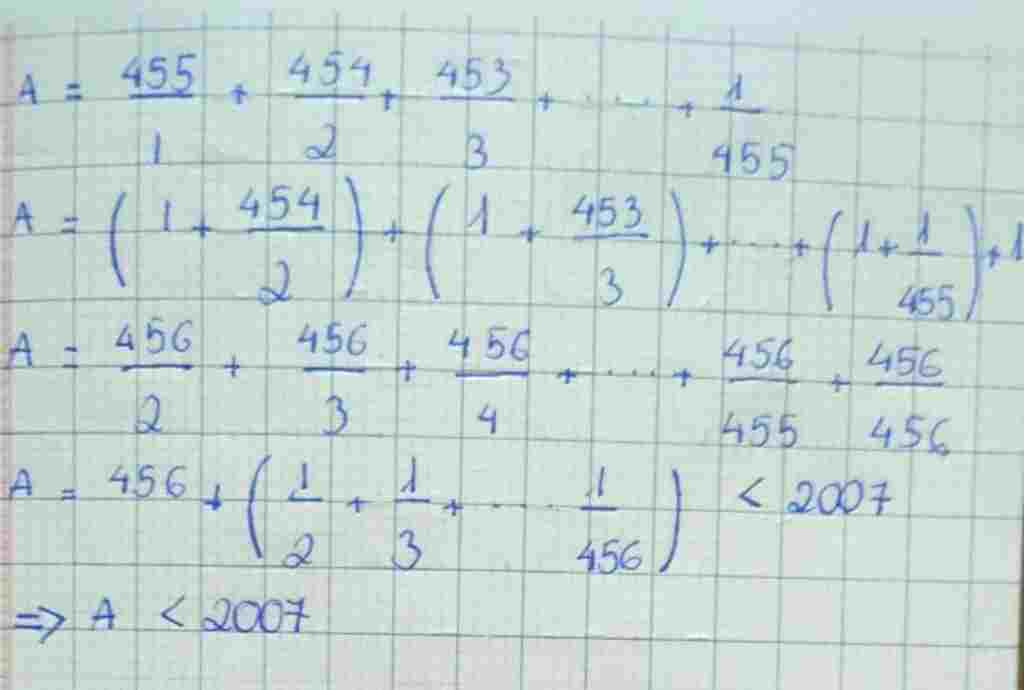 A = 455/1 + 454/2 + 453/3 + ..... + 1/455
A = (1 + 454/2) + (1 + 453/3) + ..... + (1 + 1/455) + 1
A = 456/2 + 456/3 + 456/4 + ..... + 456/455 + 456/456
A = 456 + (1/2 + 1/3 + ..... 1/456) < 2007
=> A < 2007